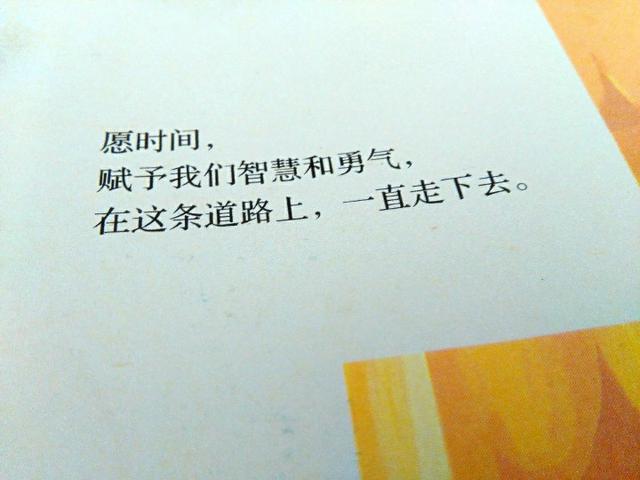 愿时间，
赋予我们智慧和勇气，
在这条道路上，一直走下去。